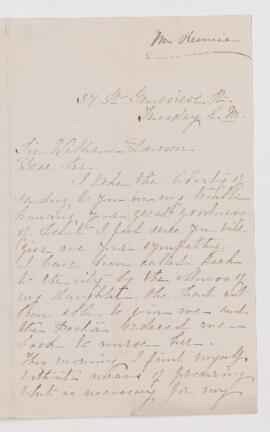 Mrs
37 St. Genevieve St.
Tuesday P.M.
Sir William Dawson
Dear Sir
I take the liberty of
sending to you in my trouble
knowing your great goodness
of heart I feel sure you will
give me your sympathy
I have been called back
to the city by the illness of
my daughter. She had not
been able to join me and
the Doctor ordered me
back to nurse her.
This morning I find myself
without means of procuring
what is necessary for my